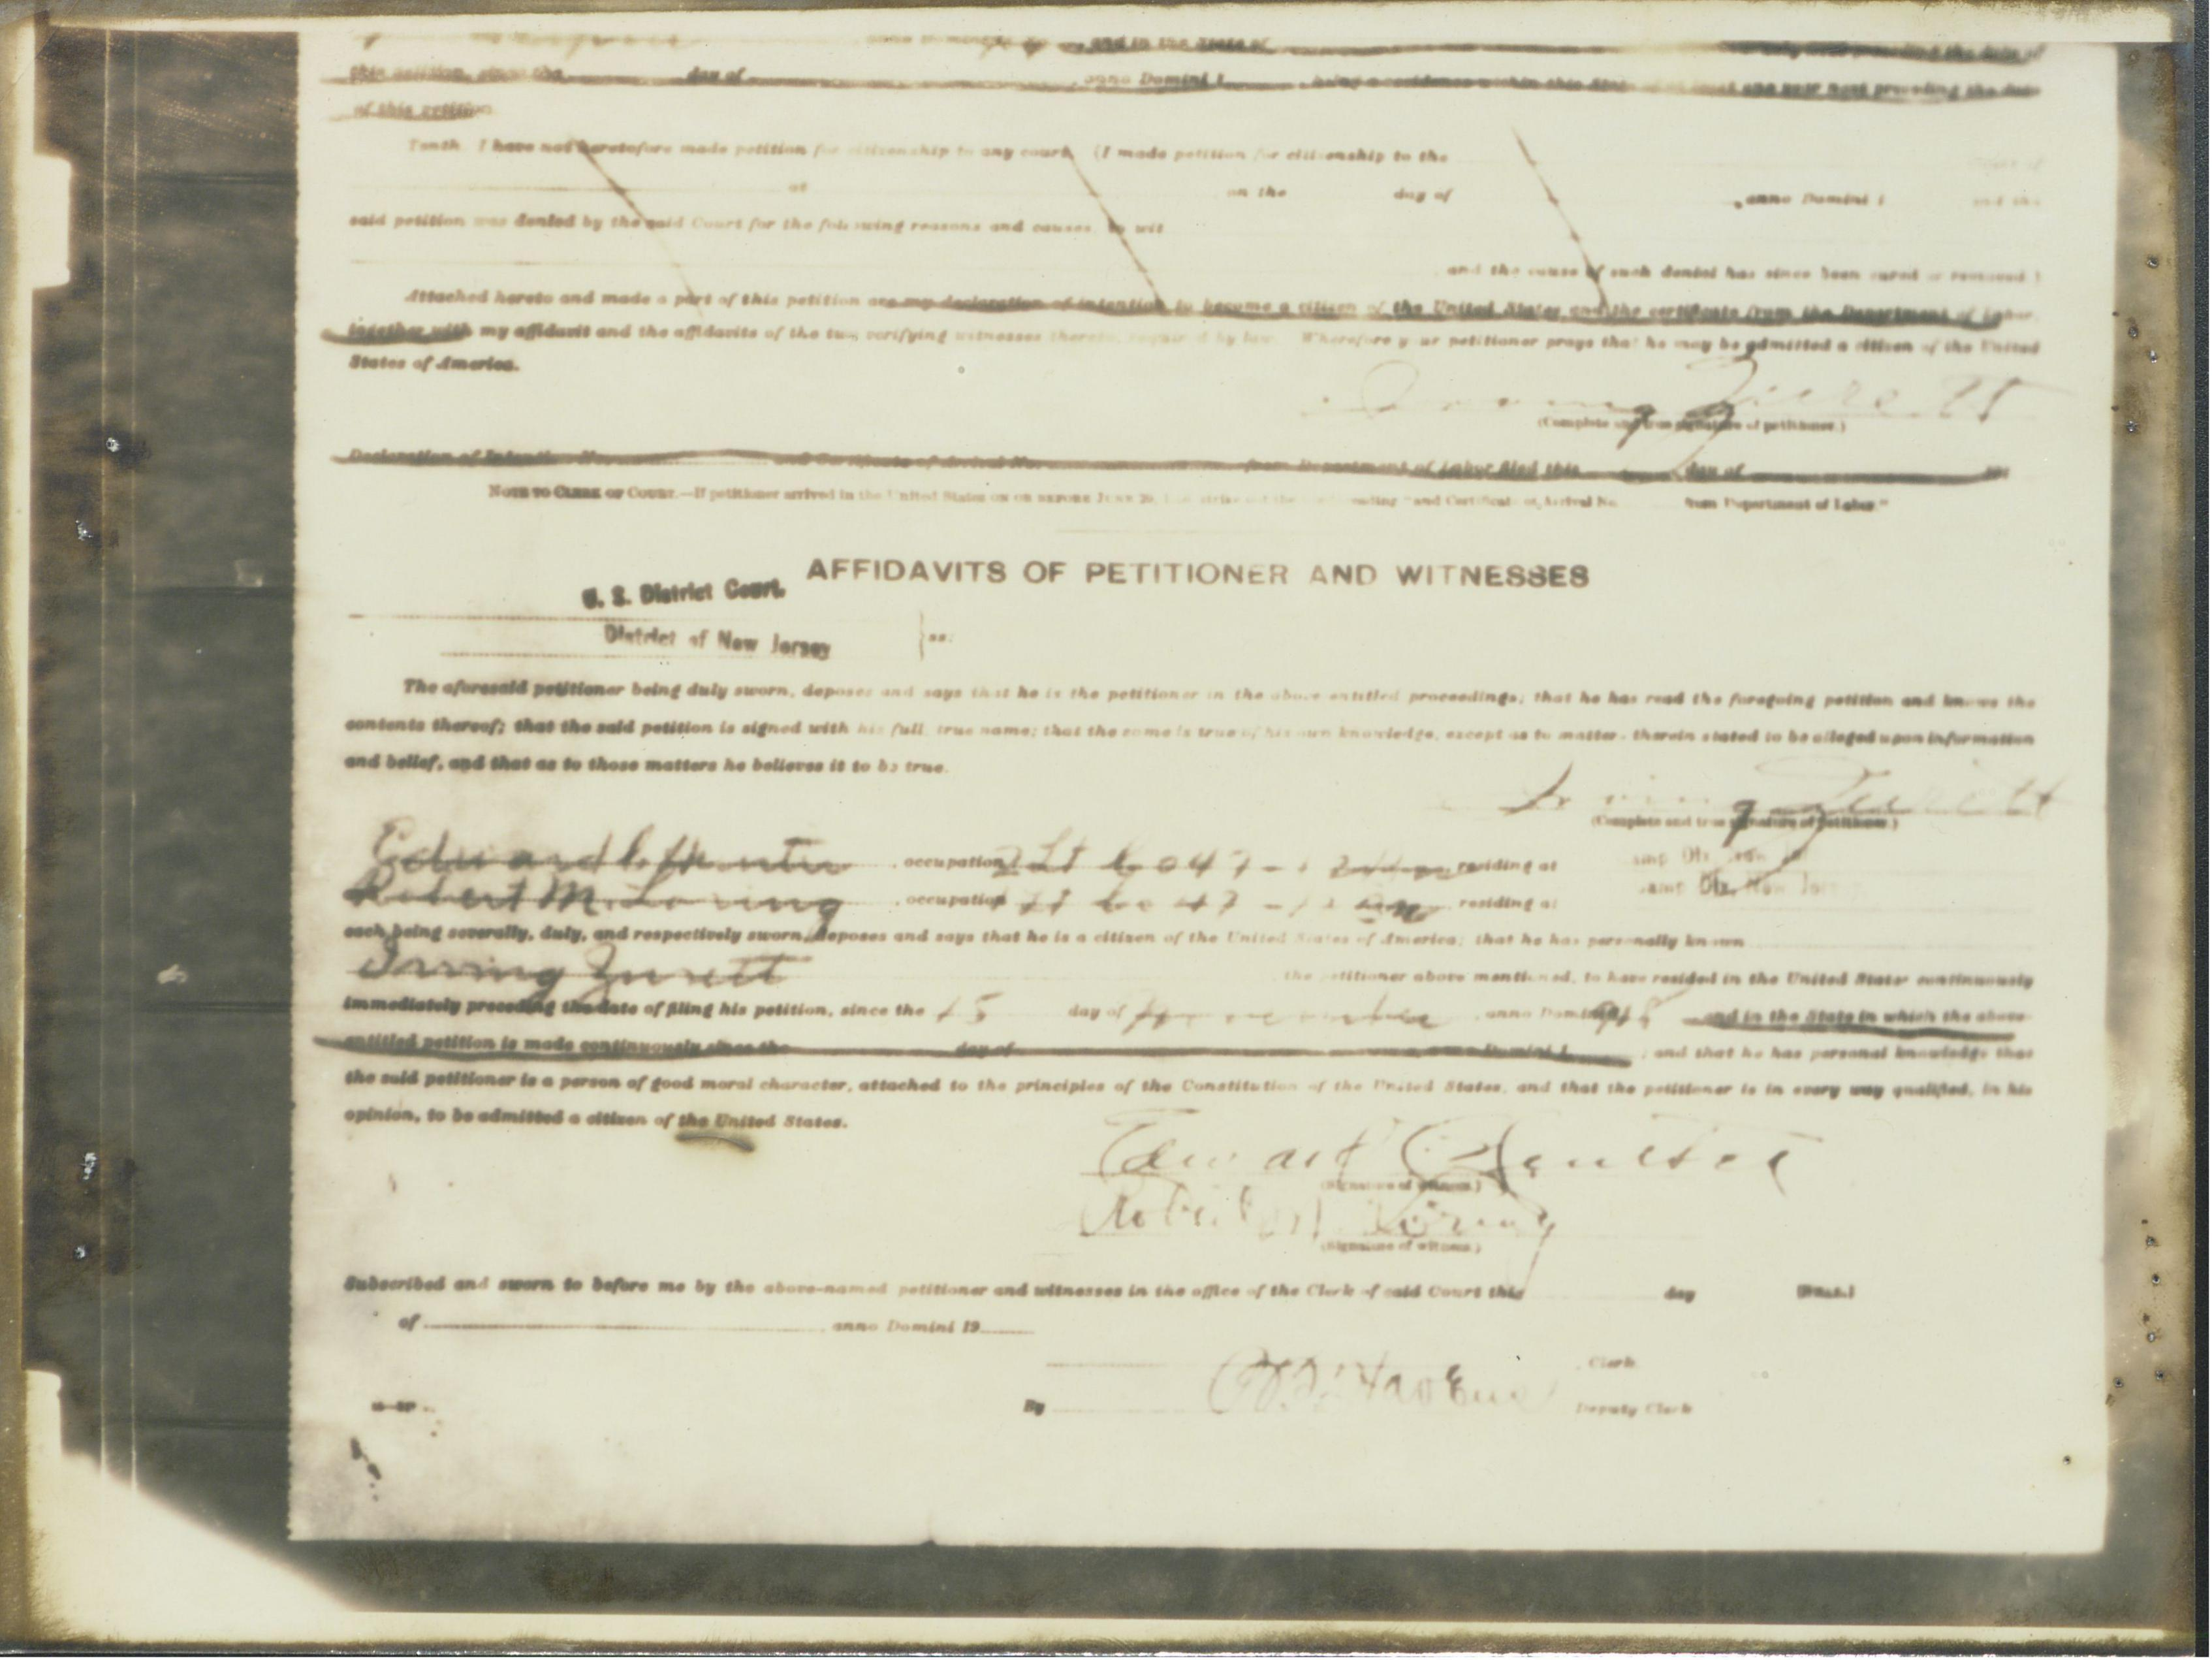 and in the State of
this petition, since the day of , anno Domini 1 , being a residence within this State of at least one year next preceding the date
of this petition.
Tenth. I have not heretofore made petition for citizenship to any court. (I made petition for citizenship to the
at on the day of , anno Domini 1 and the
said petition was denied by the said Court for the following reasons and causes, to wit
and the cause of such denial has since been cured or removed.)
Attached hereto and made a part of this petition are my declaration of intention to become a citizen of the United States and the certificate from the Department of Labor,
together with my affidavit and the affidavits of the two verifying witnesses thereto, required by law. Wherefore your petitioner prays that he may be admitted a citizen of the United
States of America.
Irving
(Complete and true signature of petitioner.)
Declaration of Intention No. and Certificate of Arrival No. from Department of Labor filed this day of 191
NOTE TO CLERK OF COURT.—If petitioner arrived in the United States ON OR BEFORE JUNE 29, strike out the reading "and Certificate of Arrival No. from Department of Labor."
AFFIDAVITS OF PETITIONER AND WITNESSES
U. S. District Court.
District of New Jersey
ss:
The aforesaid petitioner being duly sworn, deposes and says that he is the petitioner in the above-entitled proceedings; that he has read the foregoing petition and knows the
contents thereof; that the said petition is signed with his full, true name; that the same is true of his own knowledge, except as to matters therein stated to be alleged upon information
and belief, and that as to those matters he believes it to be true.
Irving
(Complete and true signature of petitioner.)
Edward , occupation 2 Lt Co 47 - 12 residing at Camp Dix,
Robert M. Loring , occupation 1 Lt Co 47 - 12 residing at Camp Dix, New Jersey
each being severally, duly, and respectively sworn, deposes and says that he is a citizen of the United States of America; that he has personally known
Irving , the petitioner above mentioned, to have resided in the United States continuously
immediately preceding the date of filing his petition, since the 15 day of , anno Domini 1918 and in the State in which the above-
entitled petition is made continuously since the day of , anno Domini 1 ; and that he has personal knowledge that
the said petitioner is a person of good moral character, attached to the principles of the Constitution of the United States, and that the petitioner is in every way qualified, in his
opinion, to be admitted a citizen of the United States.
Edward
(Signature of witness.)
Robert M. Loring
(Signature of witness.)
Subscribed and sworn to before me by the above-named petitioner and witnesses in the office of the Clerk of said Court this day [SEAL.]
of , anno Domini 19
, Clerk.
By Deputy Clerk